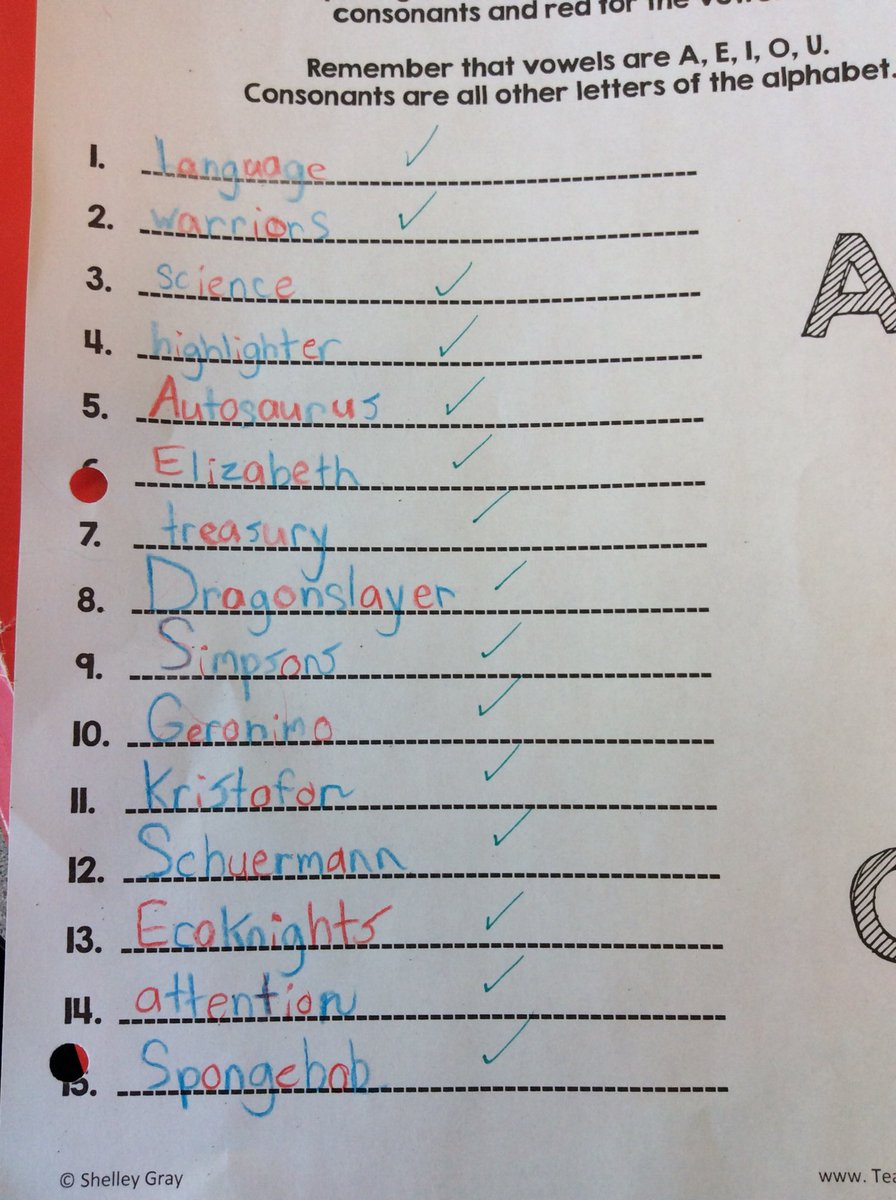 consonants and red for the
Remember that vowels are A, E, I, O, U.
Consonants are all other letters of the alphabet.
1. language
2. warriors
3. science
4. highlighter
5. Autosaurus
Elizabeth
7. treasury
8. Dragonslayer
9. Simpsons
10. Geronimo
11. Kristofor
12. Schuermann
13. EcoKnights
14. attention
15. Spongebob
A
© Shelley Gray www. Tea